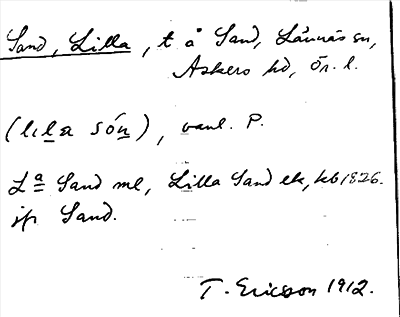 Sand, Lilla, t å Sand, Lännäs sn,
Askers hd, Ör. l.
(lıla són), vanl. P.
Lª Sand ml, Lilla Sand ek, kb 1826.
jfr Sand.
T. Ericsson 1912.